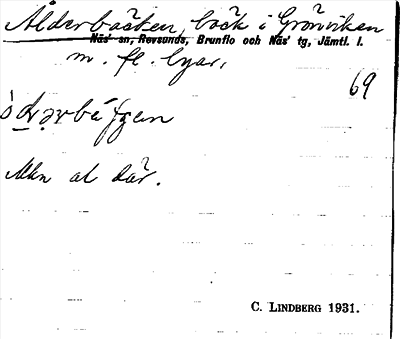 Ålderbäcken, bäck i Grönviken
Näs' sn, Revsunds, Brunflo och Näs' tg, Jämtl. l.
m. fl. byar.
69
Allm at där.
C. LINDBERG 1931.